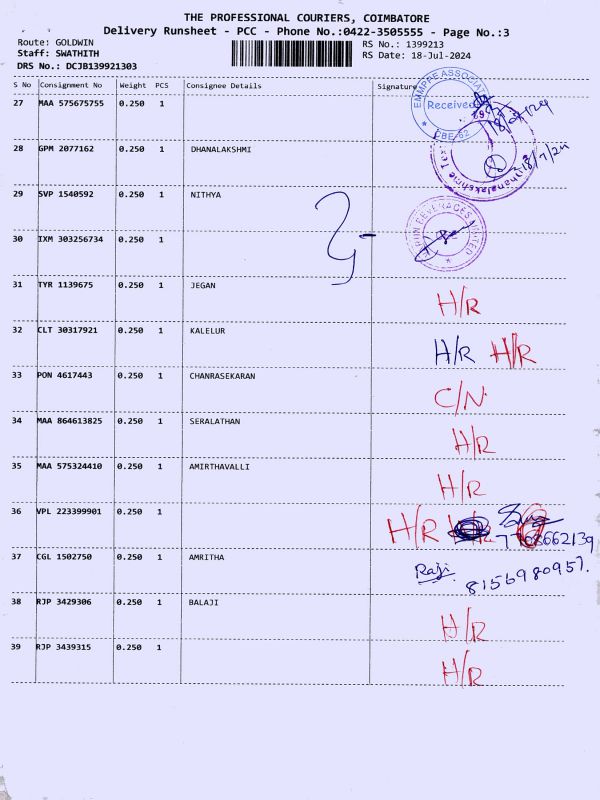 THE PROFESSIONAL COURIERS, COIMBATORE
Delivery Runsheet - PCC - Phone No.:0422-3505555 - Page No.:3
Route: GOLDWIN RS No.: 1399213
Staff: SWATHITH RS Date: 18-Jul-2024
DRS No.: DCJB139921303
S No Consignment No Weight PCS Consignee Details Signature
27 MAA 575675755 0.250 1
EMMPAE ASSOCIAT
Received
CBE-62
28 GPM 2077162 0.250 1 DHANALAKSHMI 18/7/24
29 SVP 1540592 0.250 1 NITHYA
BEVERAGES
30 IXM 303256734 0.250 1
31 TYR 1139675 0.250 1 JEGAN H/R
32 CLT 30317921 0.250 1 KALELUR H/R H/R
33 PON 4617443 0.250 1 CHANRASEKARAN C/N
34 MAA 864613825 0.250 1 SERALATHAN H/R
35 MAA 575324410 0.250 1 AMIRTHAVALLI H/R
36 VPL 223399901 0.250 1 H/R
37 CGL 1502750 0.250 1 AMRITHA Raji 8156980957.
38 RJP 3429306 0.250 1 BALAJI H/R
39 RJP 3439315 0.250 1 H/R